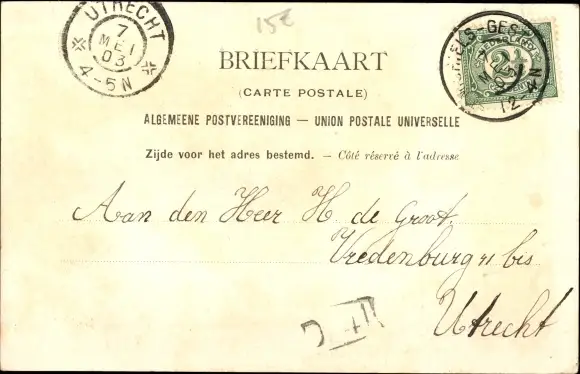 UTRECHT
7
MEI
03
4-5N
15E
BRIEFKAART
(CARTE POSTALE)
ALGEMEENE POSTVEREENIGING — UNION POSTALE UNIVERSELLE
Zijde voor het adres bestemd. — Côté réservé à l'adresse
NEDERLAND
2½
CENT
12
N
Aan den Heer H. de Groot.
Vredenburg 11 bis
Utrecht